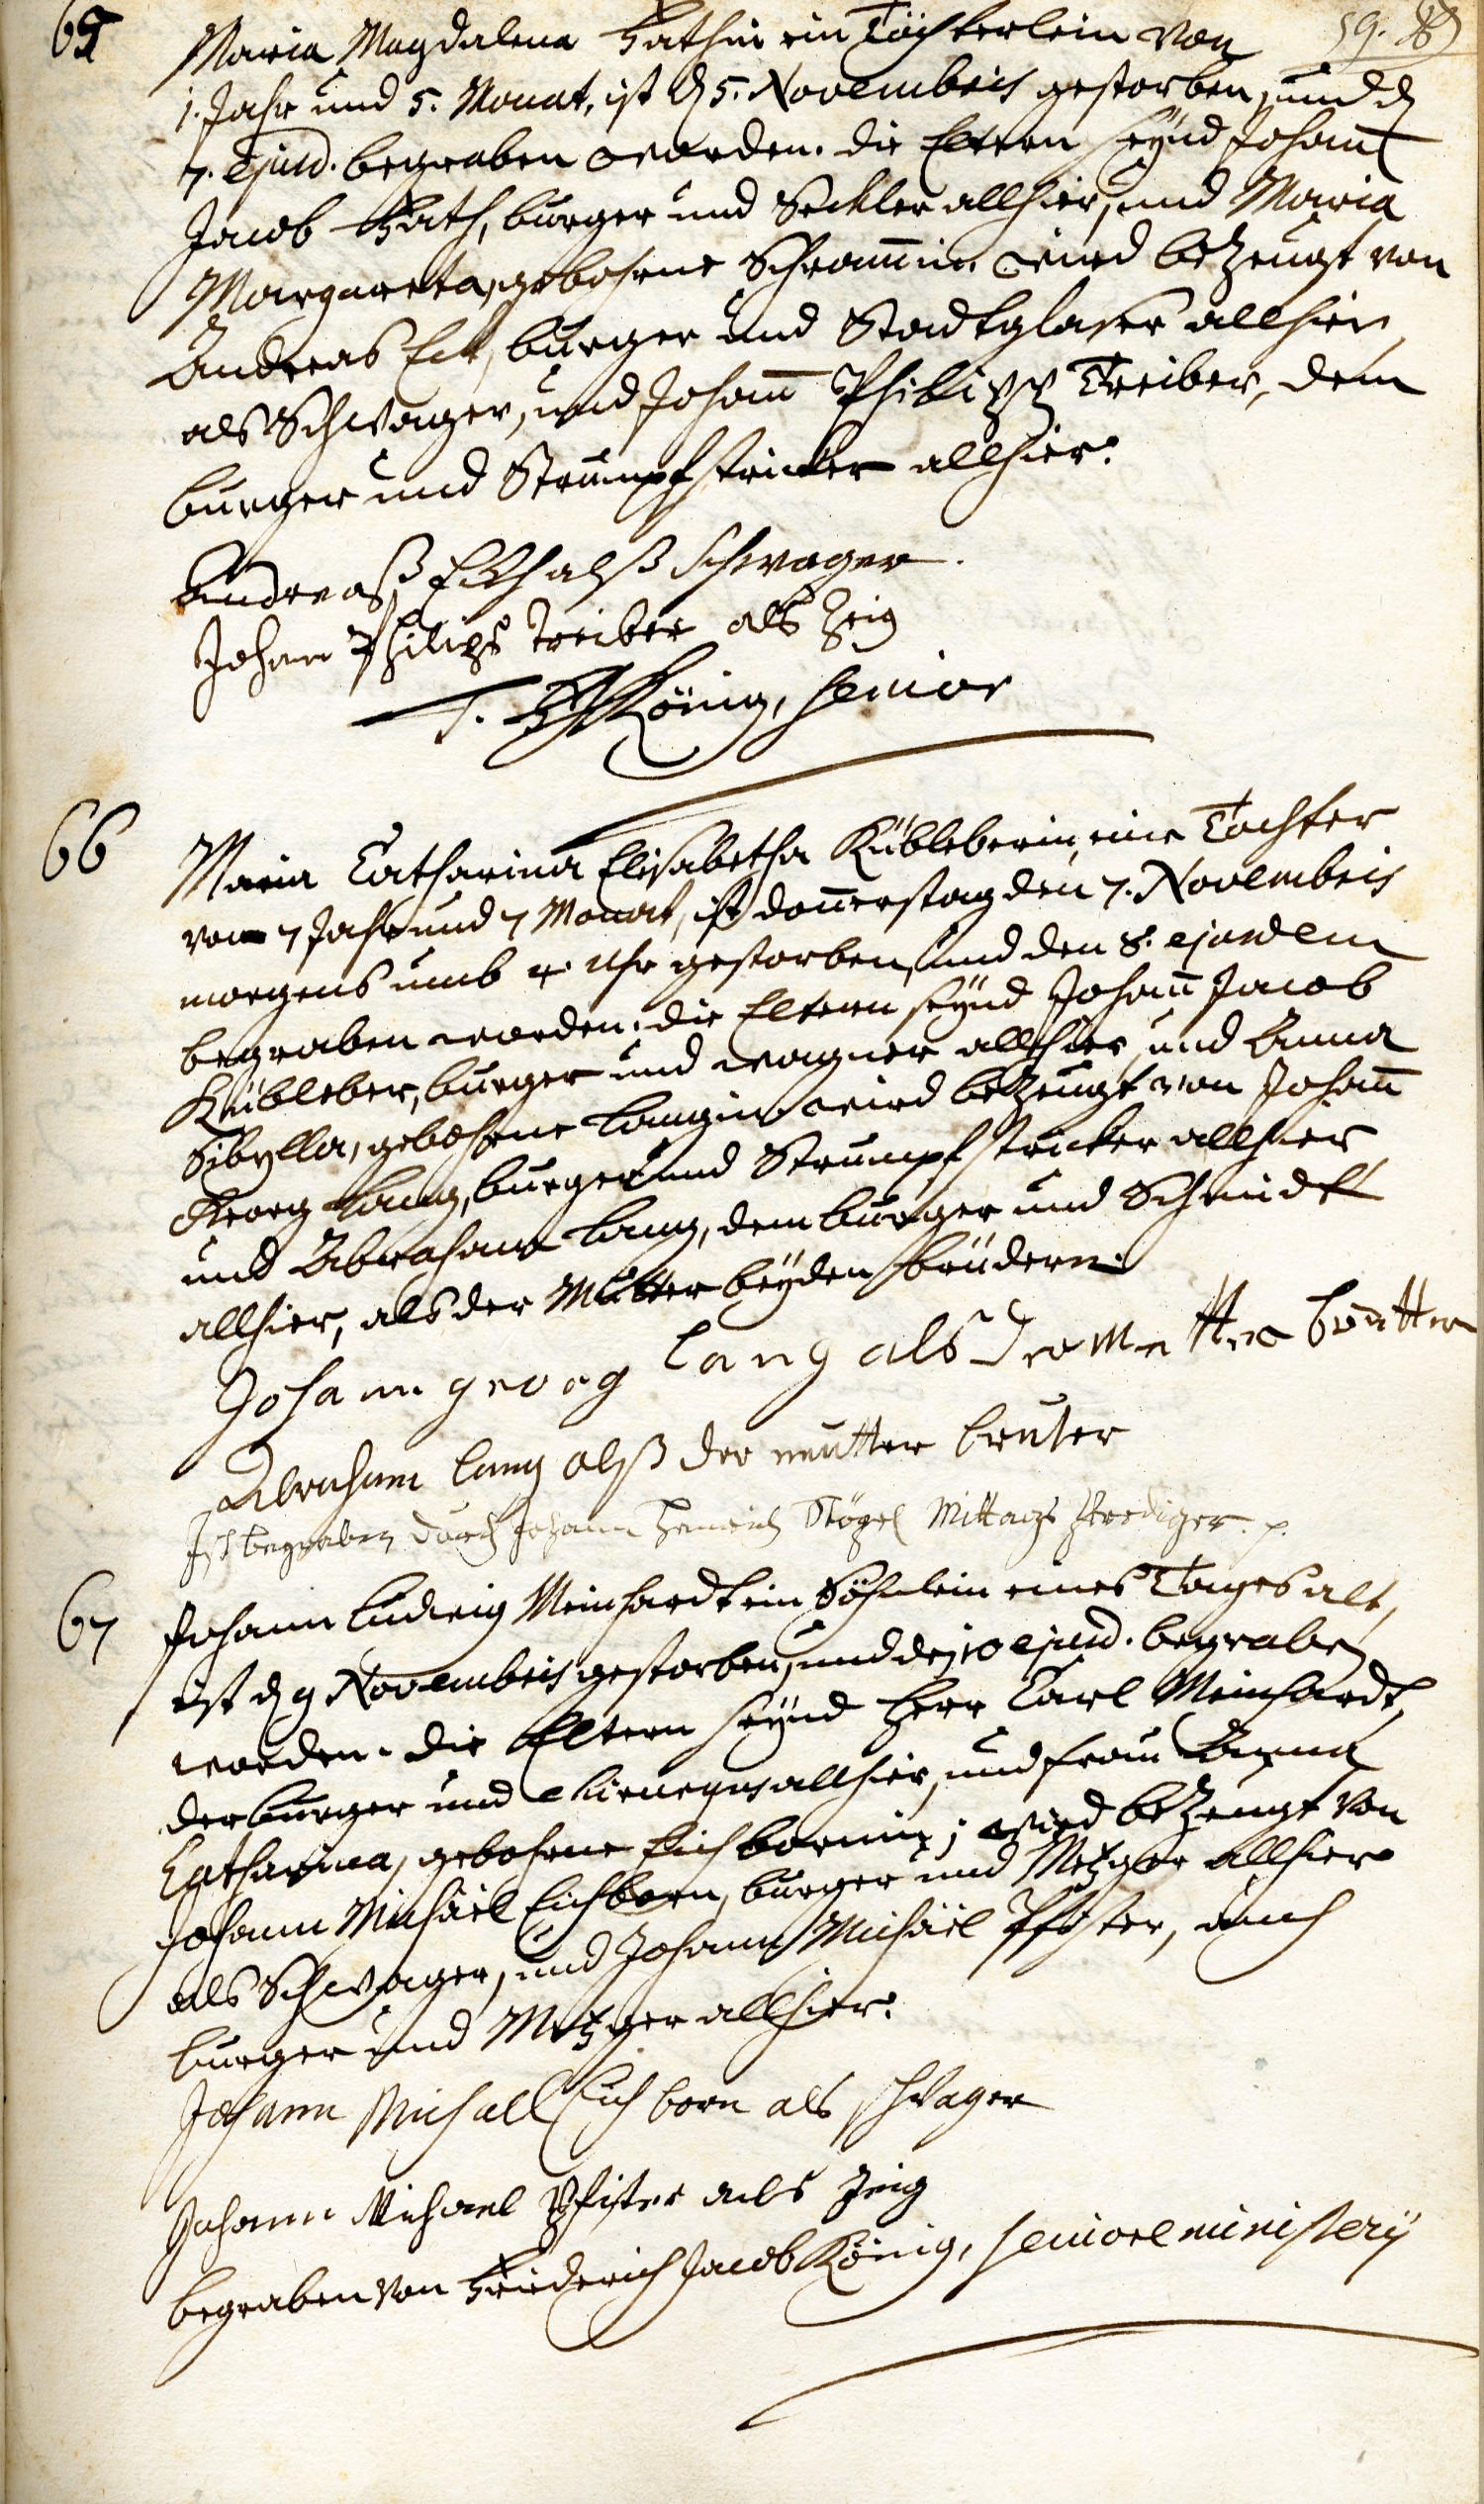 59.
65 Maria Magdalena Rathin ein Töchterlein von
1. Jahr und 5. Monat, ist d 5. Novembris gestorben, und d
7. Ejusd. begraben worden. die Eltern seynd Johann
Jacob Rath, burger und Seckler allhier, und Maria
Margareta, gebohrne Schrammin. wird bezeugt von
Andreas Eck, burger und Stadtglaser allhier,
als Schwager, und Johann Philipp Treiber, dem
burger und Strumpfstricker allhier.
Andreaß Eckh alß schwager.
Johan Philips Treiber als Zeig
König, senior
66 Maria Catharina Elisabetha Kübleberin, eine Tochter
von 7 Jahr und 7 Monat, ist donnerstag den 7. Novembris
morgens umb 4. Uhr gestorben, und den 8. ejusdem
begraben worden. die Eltern seynd Johann Jacob
Kübleber, burger und wagner allhier, und Anna
Sibylla, gebohrne Langin. wird bezeugt von Johann
Georg Lang, burger und Strumpfstricker allhier,
und Abraham Lang, dem burger und Schmidt
allhier, als der Mutter beyden brüdern.
Johann georg Lang als der Mutter brutter
Abraham lang alß der mutter bruter
Ist begraben durch Johann Henrich Stögel Mittags Prediger. p.
67 Johann Ludwig Meinhardt ein Söhnlein eines Tages alt,
ist d 9 Novembris gestorben, und den 10 ejusd. begraben
worden. die Eltern seynd Herr Carl Meinhardt,
der burger und Chirurgus allhier, und frau Anna
Catharina, gebohrne Eichbornin; wird bezeugt von
Johann Michäel Eichborn, burger und Metzger allhier
als Schwager, und Johann Michäel Pfister, auch
burger und Metzger allhier.
Johann Michael Eichborn als schwager
Johann Michael Pfister als zeig
begraben von Friderich Jacob König, seniore ministerii